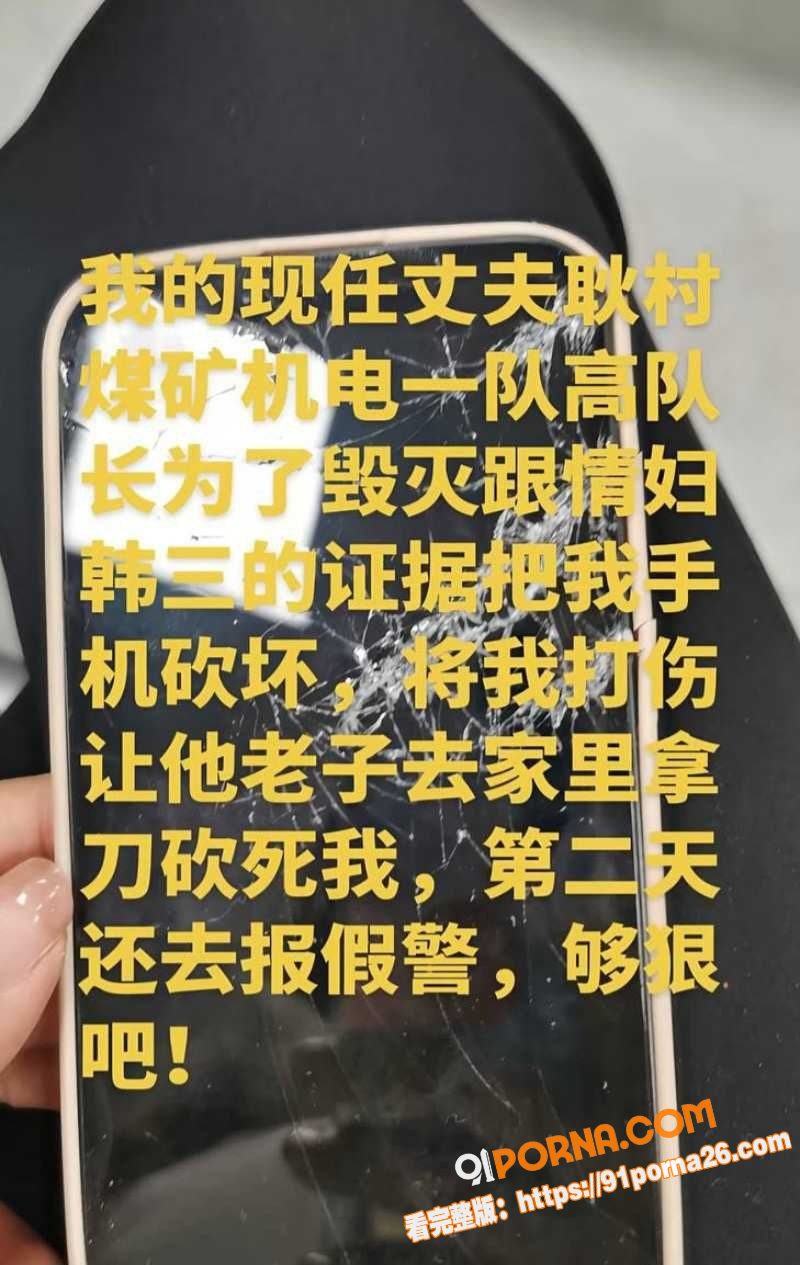 我的现任丈夫耿村
煤矿机电一队高队
长为了毁灭跟情妇
韩三的证据把我手
机砍坏，将我打伤
让他老子去家里拿
刀砍死我，第二天
还去报假警，够狠
吧！
91PORNA.COM
看完整版：https://91porna26.com